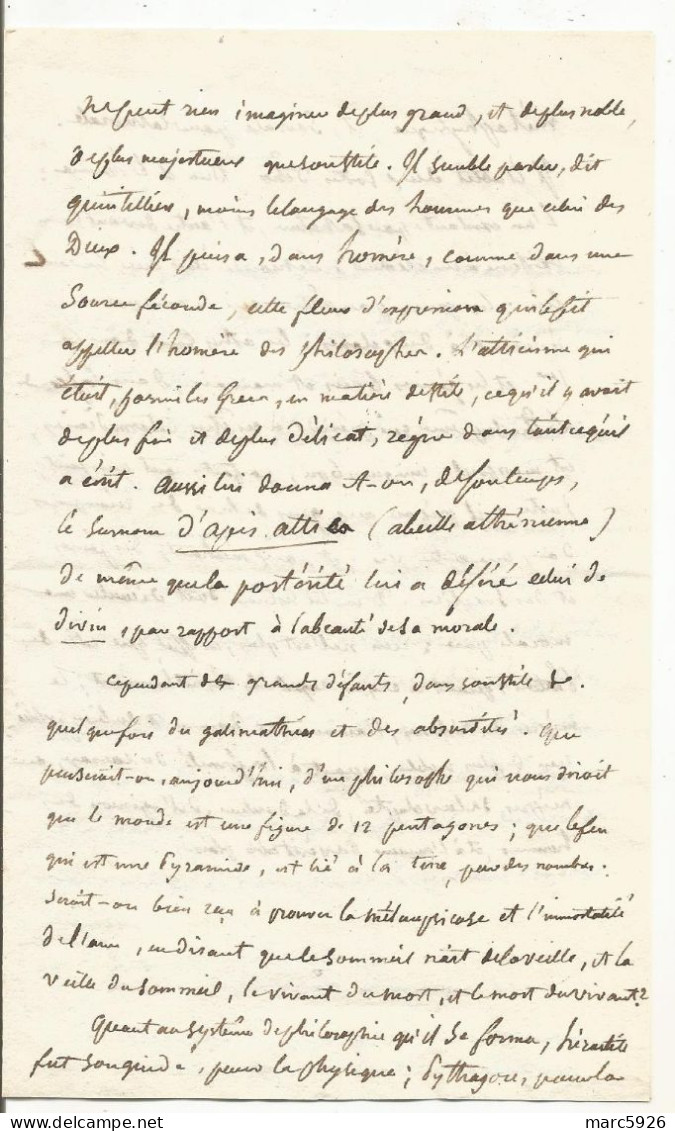 ne peut rien imaginer de plus grand, et de plus noble,
de plus majestueux que son stile. Il semble parler, dit
quintillien, moins le langage des hommes que celui des
Dieux. Il puisa, dans homère, comme dans une
Source féconde, cette fleur d'expressions qui le fit
appeller l'homère des philosophes. L'atticisme qui
étoit, parmi les Grecs, en matière de stile, ce qu'il y avoit
de plus fin et de plus délicat, règne dans tout ce qu'il
a écrit. aussi lui donna-t-on, de son temps,
le surnom d'apis attica (abeille athénienne)
de même que la postérité lui a déféré celui de
divin, par rapport à la beauté de sa morale.
cependant de grands défauts, dans son stile &.
quelquefois du galimathias et des absurdités. Que
penseroit-on, aujourd'hui, d'un philosophe qui nous diroit
que le monde est une figure de 12 pentagones; que le feu
qui est une pyramide, est lié à la terre, par des nombres.
Seroit-on bien reçu à prouver la métempsicose et l'immortalité
de l'ame, en disant que le sommeil nait de la veille, et la
veille du sommeil, le vivant du mort, et le mort du vivant?
Quant au système de philosophie qu'il se forma, héraclite
fut son guide, pour la physique; Pythagore, pour la
marc5926